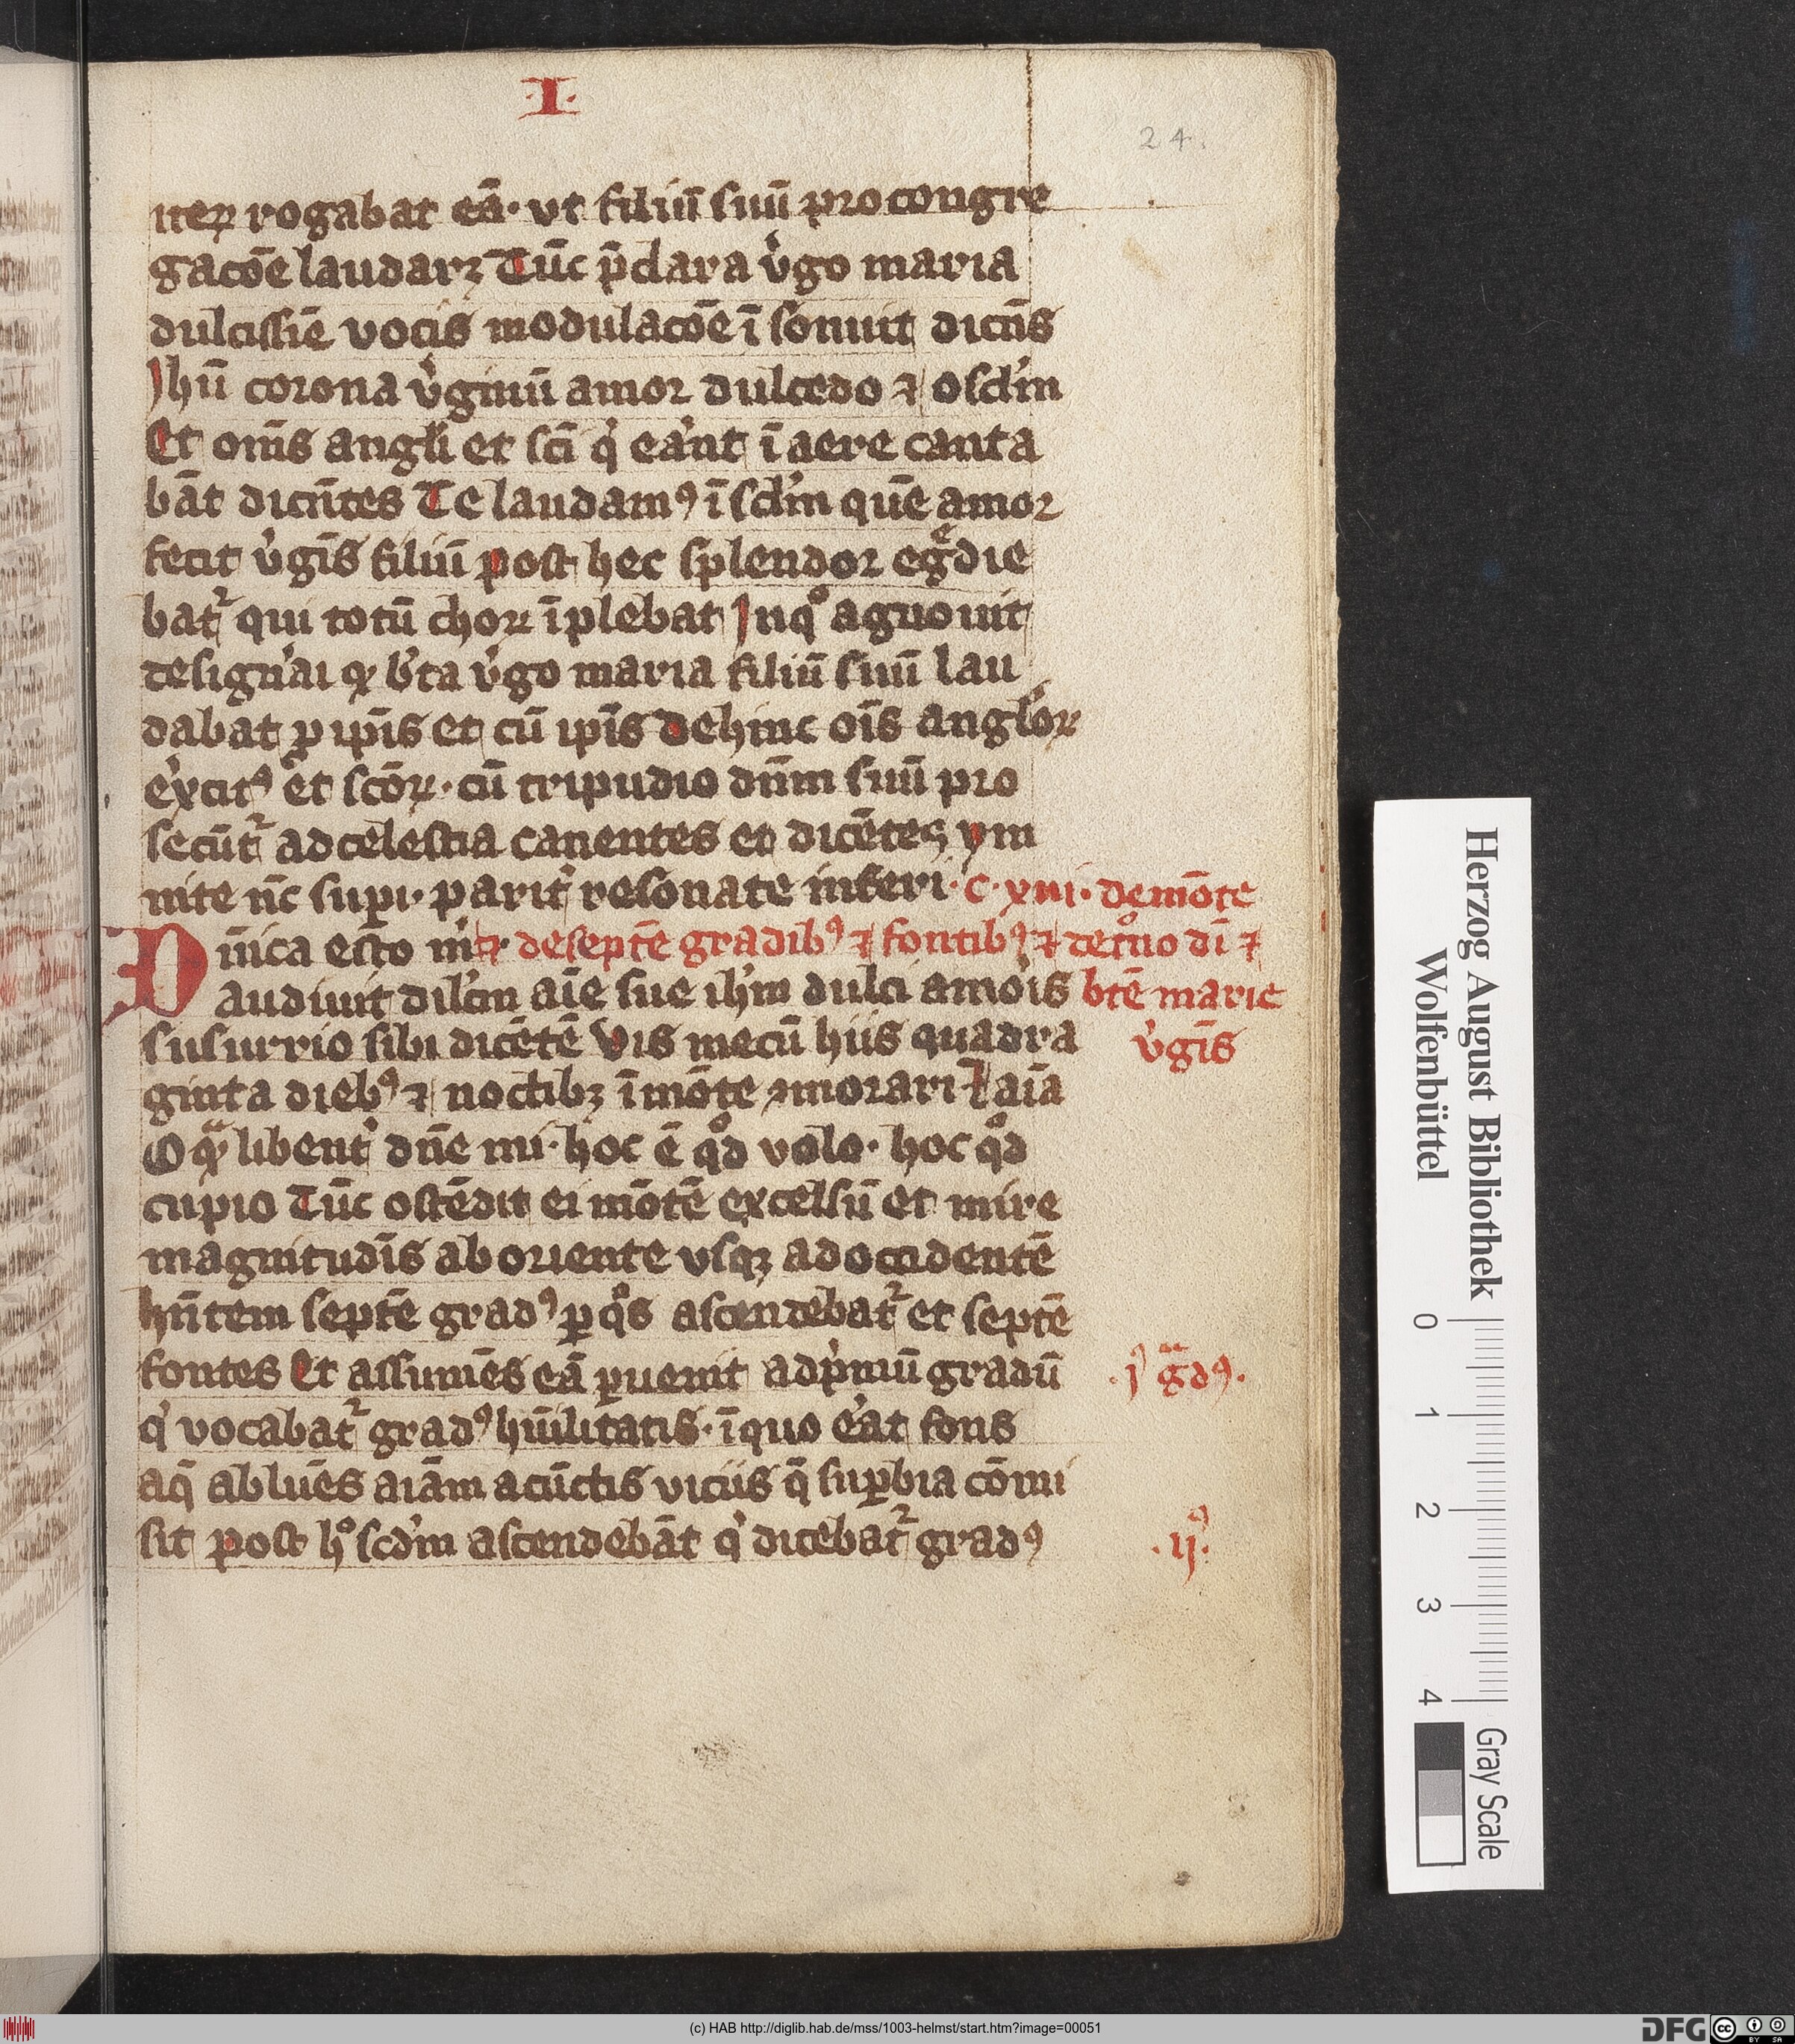 ·I·
24.
rogabat eā· vt filiū suū pro congre
gacōe laudarꝫ Tūc p̄clara v̓go maria
dulcissīe vocis modulacōe ī sonuit dicn̄s
Jhū corona v̓ginū amor dulcedo ⁊ oscl̓m
Et om̄s angl̓i et sc̄i q̓ ea̓nt ī aere canta
bāt dicn̄tes Te laudamꝰ ī scl̓m quē amor
fecit v̓gīs filiū post hec splendor egͤdie
bat᷑ qui totū choꝝ īplebat Jn qͦ agnouit
desigña̓i ꝙ b̓ta v̓go maria filiū suū lau
dabat ꝑ ip̄is et cū ip̄is dehinc oīs angl̓oꝝ
ex̓citꝰ et scōꝝ· cū tripudio dn̄m suū pro
secūt᷑ ad celestia canentes et dicētes ym
nite nc̄ suꝑi· parit̓ resonate inferi· c· xiii· de mōte
Dn̄ica esto m̓ de septē gradibꝰ ⁊ fontibꝰ ⁊ de tͦno dī ⁊
audiuit dil̓cm aīe sue ih̓m dulci amo̓is btē marie
susurrio sibi dicētē Vis mecū hiis quadra v̓gīs
ginta diebꝰ ⁊ noctibꝫ ī mōte ꝯmorari ⁊ aīa
O qᷓ libent̓ dn̄e mi· hoc ē qͦd volo· hoc qͦd
cupio Tūc ostēdit ei mōtē excelsū et mire
magnitudīs ab oriente vsqꝫ ad occidentē
hn̄tem septē gradꝰ ꝑ qͦs ascendebat᷑ et septē
fontes Et assumēs eā ꝑuenit ad p̓mū gradū ·jꝰ gᷓdꝰ·
q̓ vocabat᷑ gradꝰ hūilitatis· ī quo e̓at fons
aq̄ abluēs aīam a cūctis viciis q̄ suꝑbia cōmi
sit post hͦ scd̓m ascendebāt q̓ dicebat᷑ gradꝰ ·ijꝰ·
Herzog August Bibliothek
Wolfenbüttel
0 1 2 3 4
Gray Scale
(c) HAB http://diglib.hab.de/mss/1003-helmst/start.htm?image=00051
DFG
cc BY SA